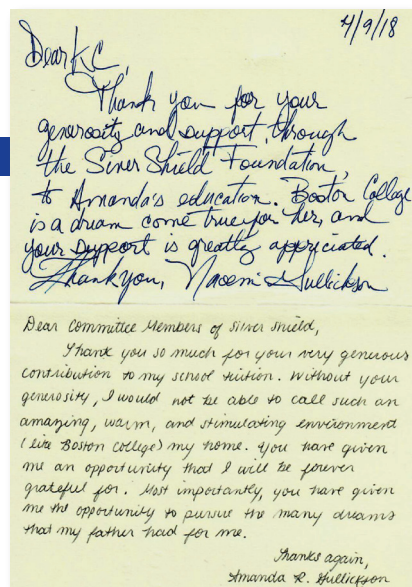 4/9/18
Dear KC,
Thank you for your
generosity and support, through
the Silver Shield Foundation,
to Amanda's education. Boston College
is a dream come true for her, and
your support is greatly appriciated.
Thank you, Naomi Gullickson
Dear Committee Members of Silver Shield,
Thank you so much for your very generous
contribution to my school tuition. Without your
generosity, I would not be able to call such an
amazing, warm, and stimulating environment
(like Boston College) my home. You have given
me an opportunity that I will be forever
grateful for. Most importantly, you have given
me the opportunity to pursue the many dreams
that my father had for me.
Thanks again,
Amanda R. Gullickson